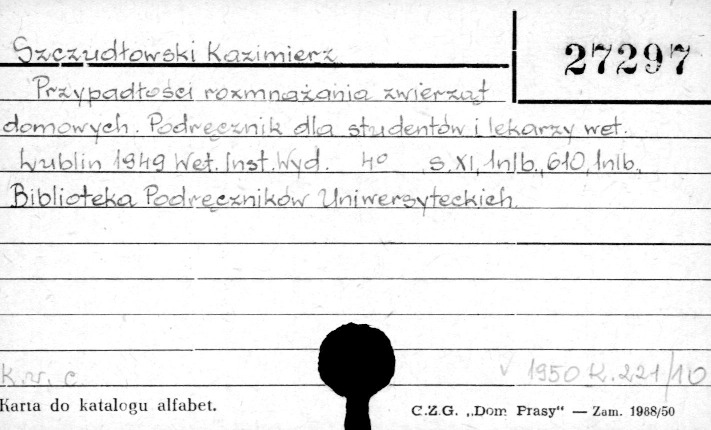 Szczudłowski Kazimierz
27297
Przypadłości rozmnażania zwierząt
domowych. Podręcznik dla studentów i lekarzy wet.
Lublin 1949 Wet. Inst. Wyd. 4° s. XI, 1nlb., 610, 1nlb.
Biblioteka Podręczników Uniwersyteckich.
√ 1950 K. 221/10
Karta do katalogu alfabet.
C.Z.G. „Dom Prasy“ — Zam. 1988/50